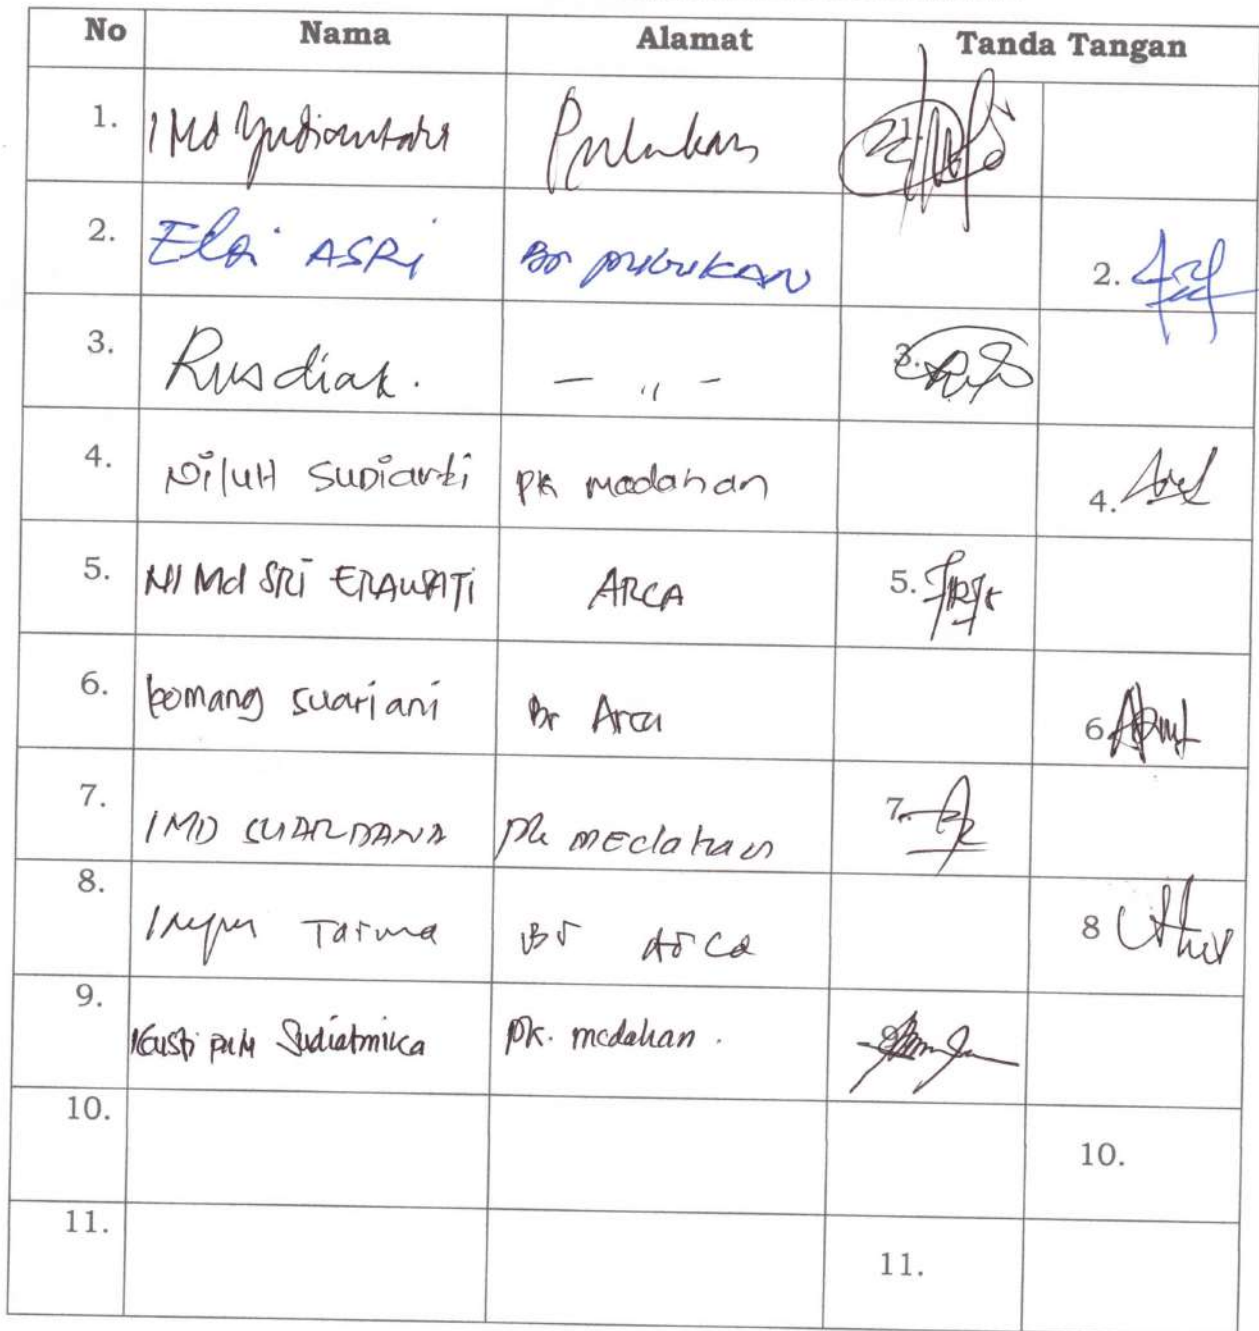 No Nama Alamat Tanda Tangan
1. I Md Yudiantara Pulukan
2. Elsi ASRi Br pulukan 2.
3. Rusdiak. - " - 3.
4. Ni luH Sudiarti PK medahan 4.
5. NI Md SRI ERAWATi ARCA 5.
6. komang suariani Br Arca 6
7. I MD SUARDANA pk mEdahan 7.
8. Tarma Br Arca 8
9. I Gusti putu Sudiatmika pk. medahan. 9.
10. 10.
11. 11.